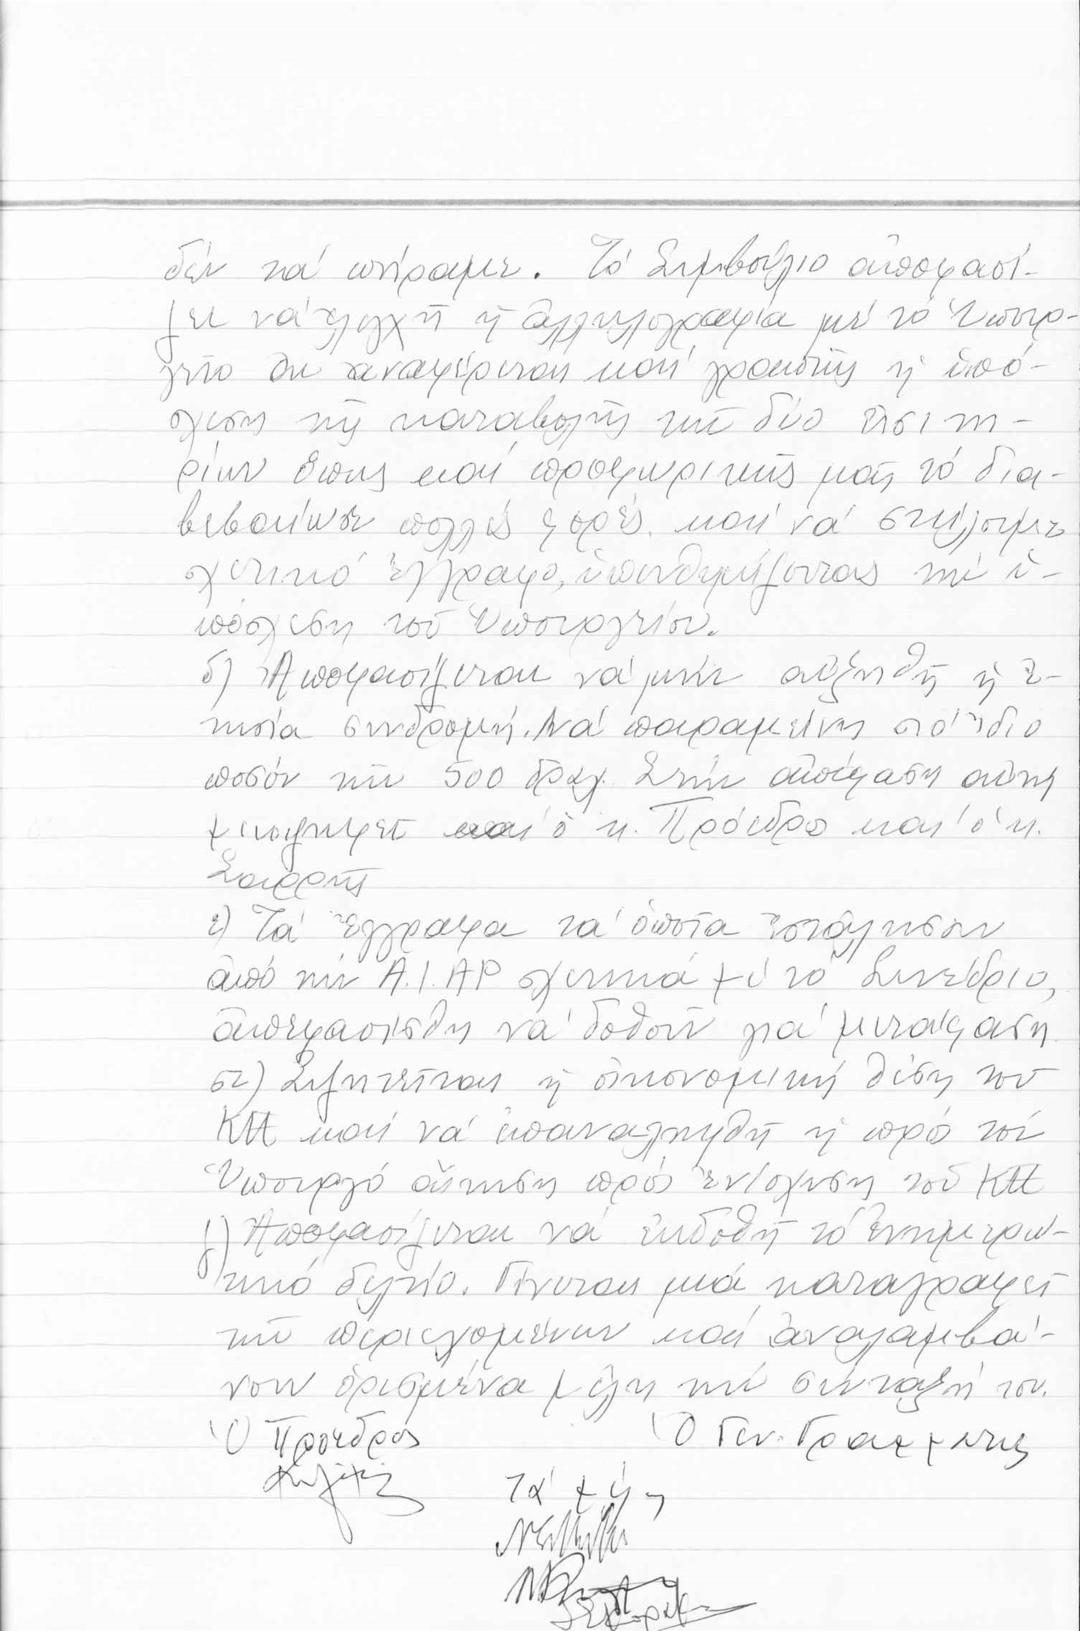 δέν τά πήραμε. Τό Συμβούλιο ἀποφασί-
ζει νά ἐλεγχῆ ἡ ἀλληλογραφία μέ τό Ὑπουρ-
γεῖο ἄν ἀναφέρεται καί γραπτῶς ἡ ὑπό-
σχεση τῆς καταβολῆς τῶν δύο εἰσιτη-
ρίων ὅπως καί προφορικῶς μᾶς τό δια-
βεβαίωσε πολλές φορές. καί νά στείλουμε
σχετικό ἔγγραφο, ὑπενθυμίζοντας τήν ὑ-
πόσχεση τοῦ Ὑπουργείου.
δ) Ἀποφασίζεται νά μήν αὐξηθῆ ἡ ἐ-
τησία συνδρομή. Νά παραμείνη στό ἴδιο
ποσόν τῶν 500 δραχ. Στήν ἀπόφαση αὐτή
μειοψηφεῖ καί ὁ κ. Πρόεδρος καί ὁ κ.
Σαρρῆς
ε) Τά ἔγγραφα τά ὁποῖα ἐστάλησαν
ἀπό τήν A.I.AP σχετικά μέ τό Συνέδριο,
ἀπεφασίσθη νά δοθοῦν γιά μετάφαση
στ) Συζητεῖται ἡ οἰκονομική θέση τοῦ
καί νά ἐπαναληφθῆ ἡ πρό τόν
Ὑπουργό αἴτηση πρός ἐνίσχυση τοῦ
ζ) Ἀποφασίζεται νά ἐκδοθῆ τό Ἐνημερω-
τικό δελτίο. Γίνεται μιά καταγραφή
τῶν περιεχομένων καί ἀναλαμβά-
νουν ὁρισμένα μέλη τήν σύνταξή του.
Ὁ Πρόεδρος Ὁ Γεν. Γραμματεύς
Τά μέλη